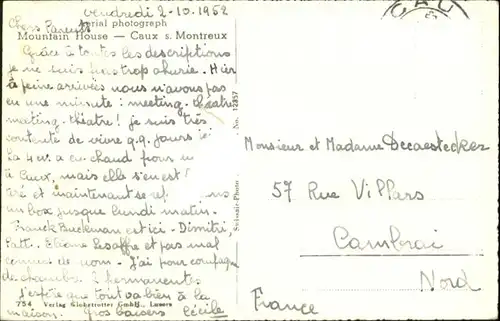 vendredi 2-10.1952
Chers Parents
Aerial photograph
Mountain House — Caux s. Montreux
Grâce à toutes les descriptions
je ne suis pas trop ahurie. Hier
à peine arrivées nous n'avons pas
eu une minute: meeting. théâtre
meeting. théâtre! je suis très
contente de vivre q.q. jours ici
La 4 cv. a eu chaud pour
à Caux, mais elle s'en est
tiré et maintenant se
un box jusque lundi matin.
Franck Buckman est ici - Dimitri,
Patti. Etiene Lesaffre et pas mal
connus de nom. J'ai pour compagnes
de chambre 2 permanentes
J'espère que tout va bien à la
754 Verlag Globetrotter GmbH., Luzern
maison. Gros baisers Cécile
Swissair-Photo No. 12357
CAUX
Monsieur et Madame Decaestecker
57 Rue Villars
Cambrai
Nord
France